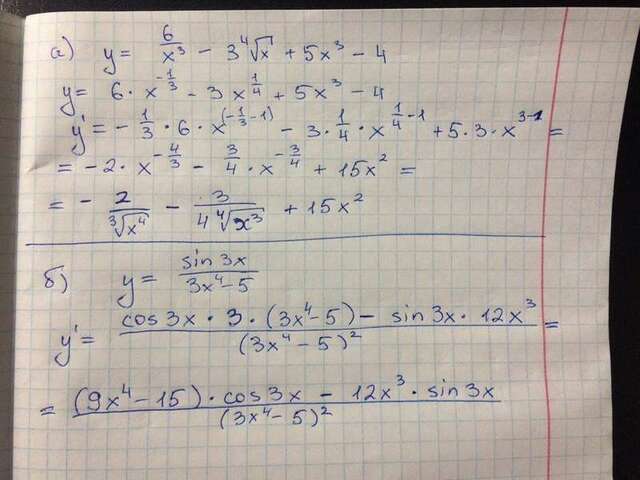 а) y = 6/x³ - 3⁴√x + 5x³ - 4
y = 6 · x^(-1/3) - 3x^(1/4) + 5x³ - 4
y' = - 1/3 · 6 · x^(-1/3 - 1) - 3 · 1/4 · x^(1/4 - 1) + 5 · 3 · x^(3-1) =
= - 2 · x^(-4/3) - 3/4 · x^(-3/4) + 15x² =
= - 2/∛x⁴ - 3/(4 ⁴√x³) + 15x²
б) y = sin 3x / (3x⁴ - 5)
y' = (cos 3x · 3 · (3x⁴ - 5) - sin 3x · 12x³) / (3x⁴ - 5)² =
= ((9x⁴ - 15) · cos 3x - 12x³ · sin 3x) / (3x⁴ - 5)²